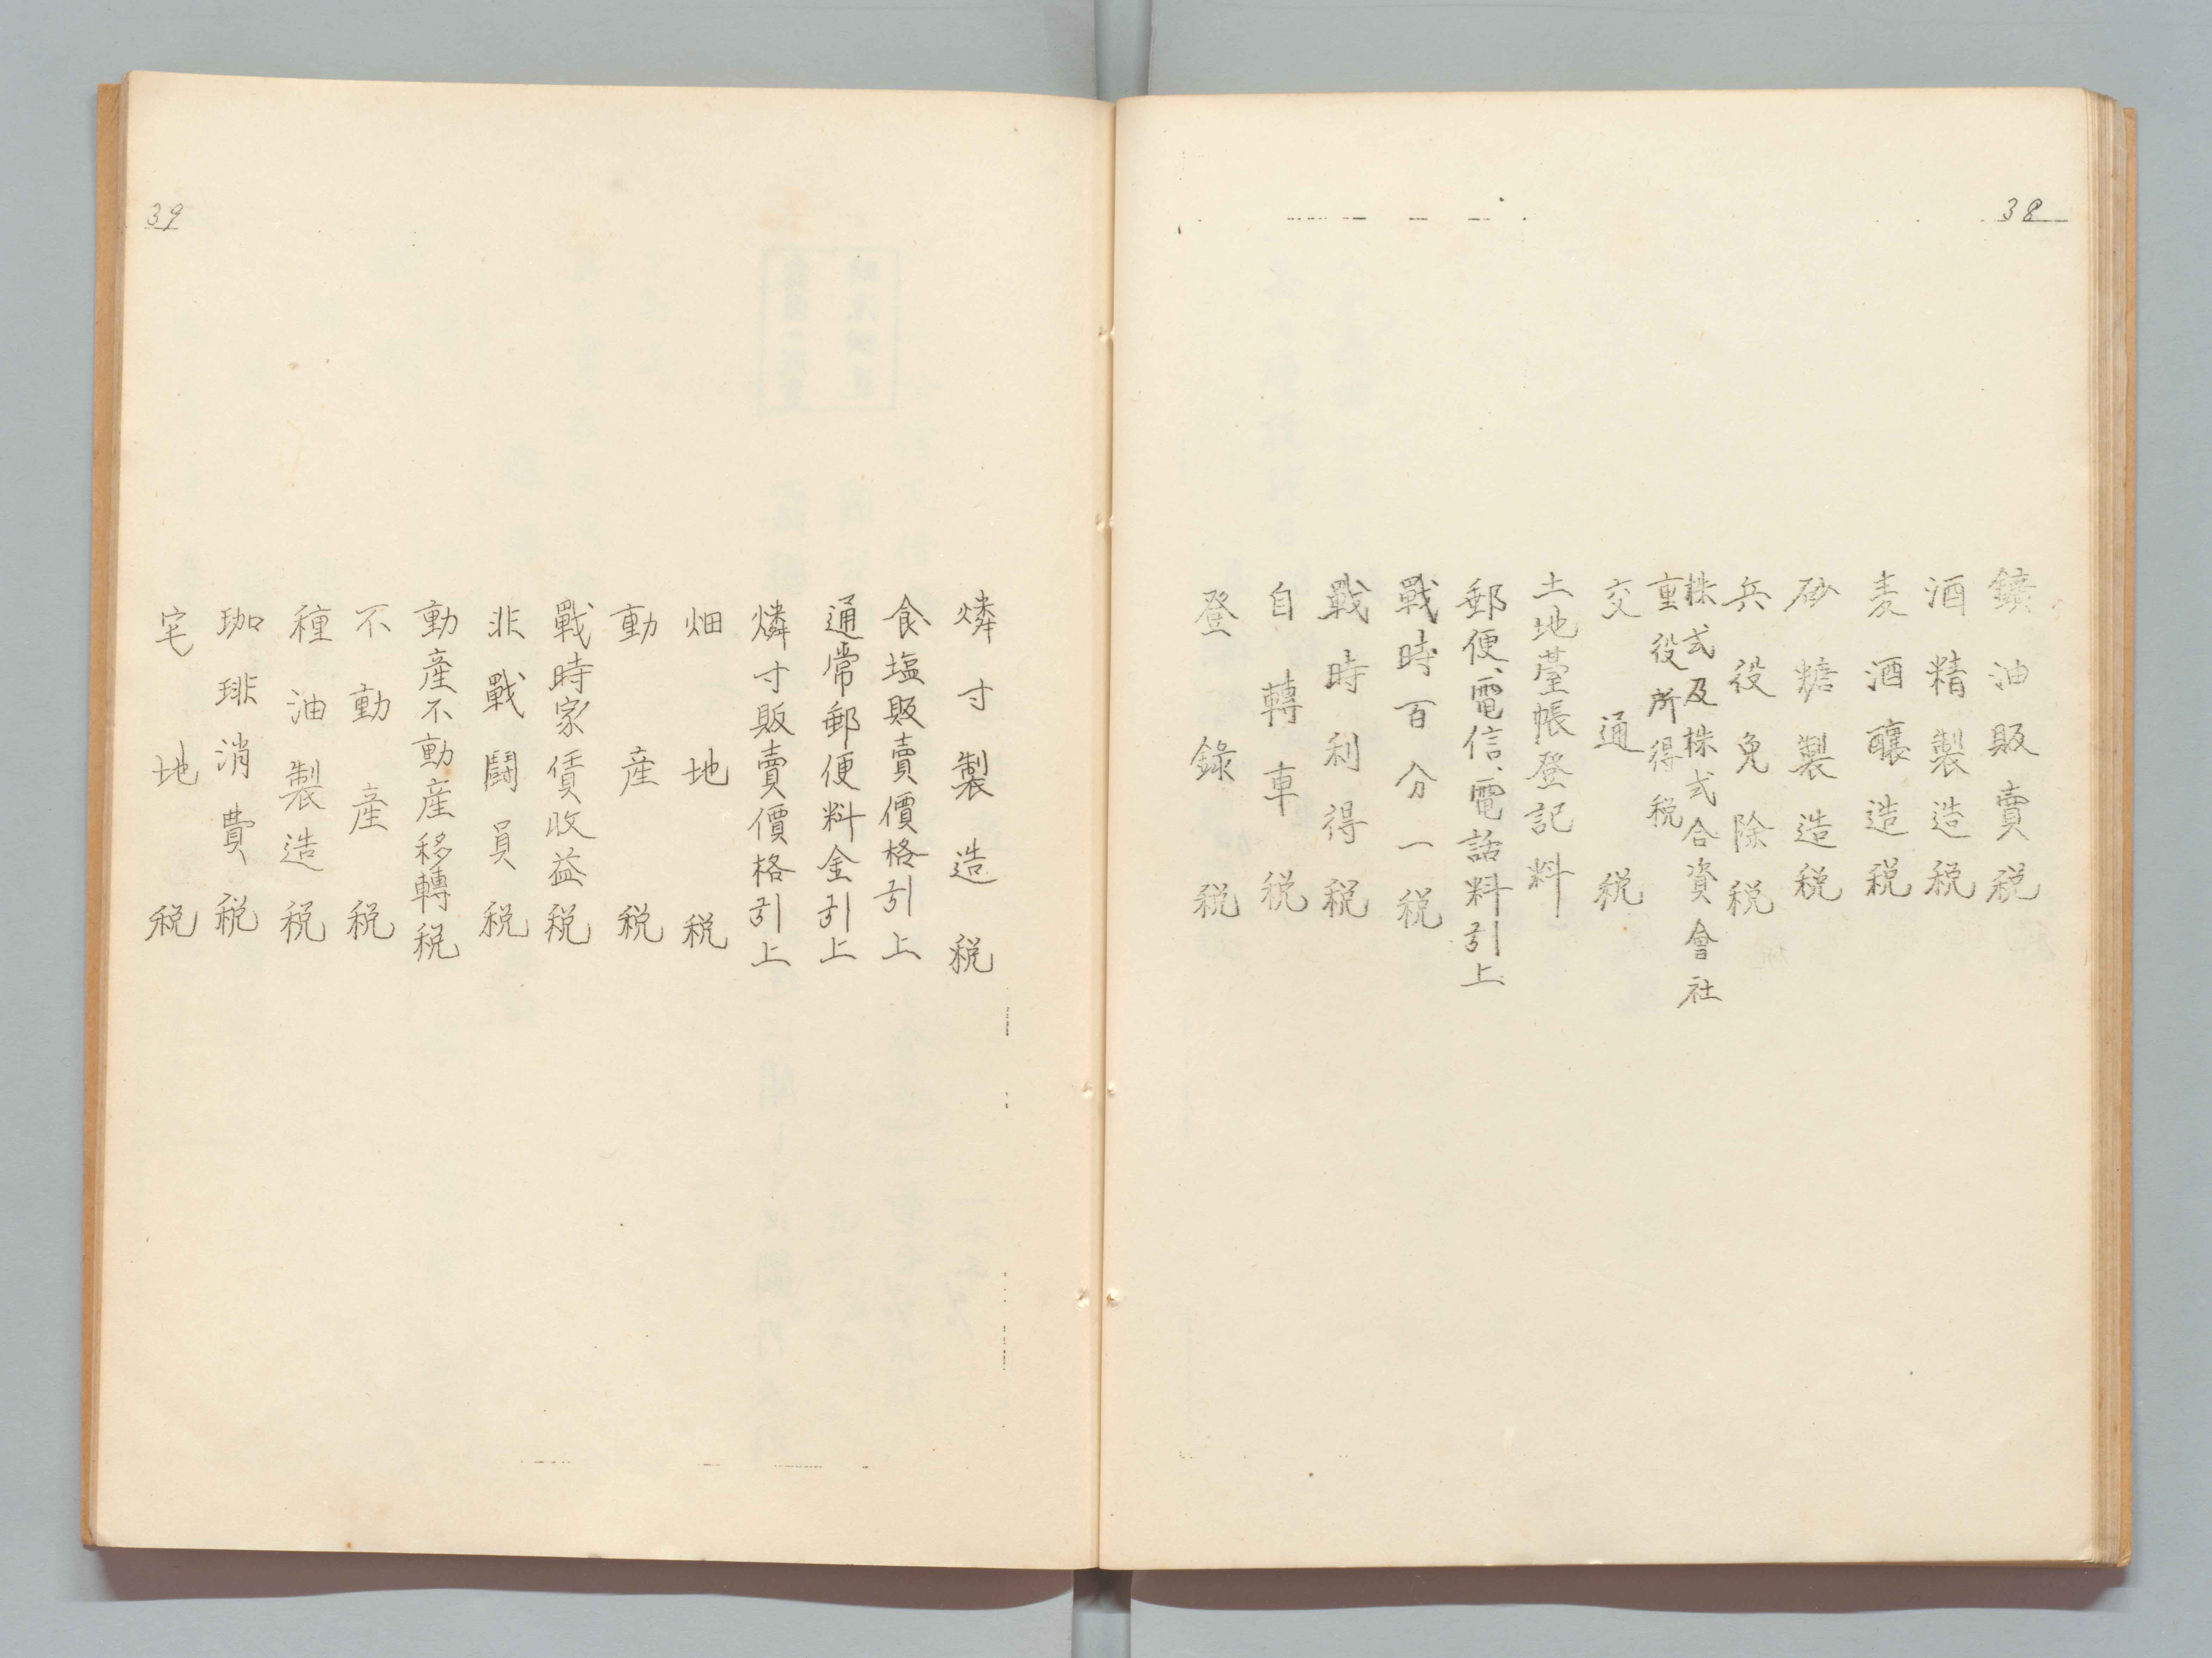 38
鑛油販賣税
酒精製造税
麦酒釀造税
砂糖製造税
兵役免除税
株式及株式合資會社
重役所得税
交通税
土地臺帳登記料
郵便、電信、電話料引上
戰時百分一税
戰時利得税
自轉車税
登錄税
39
燐寸製造税
食塩販賣價格引上
通常郵便料金引上
燐寸販賣價格引上
畑地税
動産税
戰時家賃收益税
非戰鬪員税
動産不動産移轉税
不動産税
種油製造税
珈琲消費税
宅地税